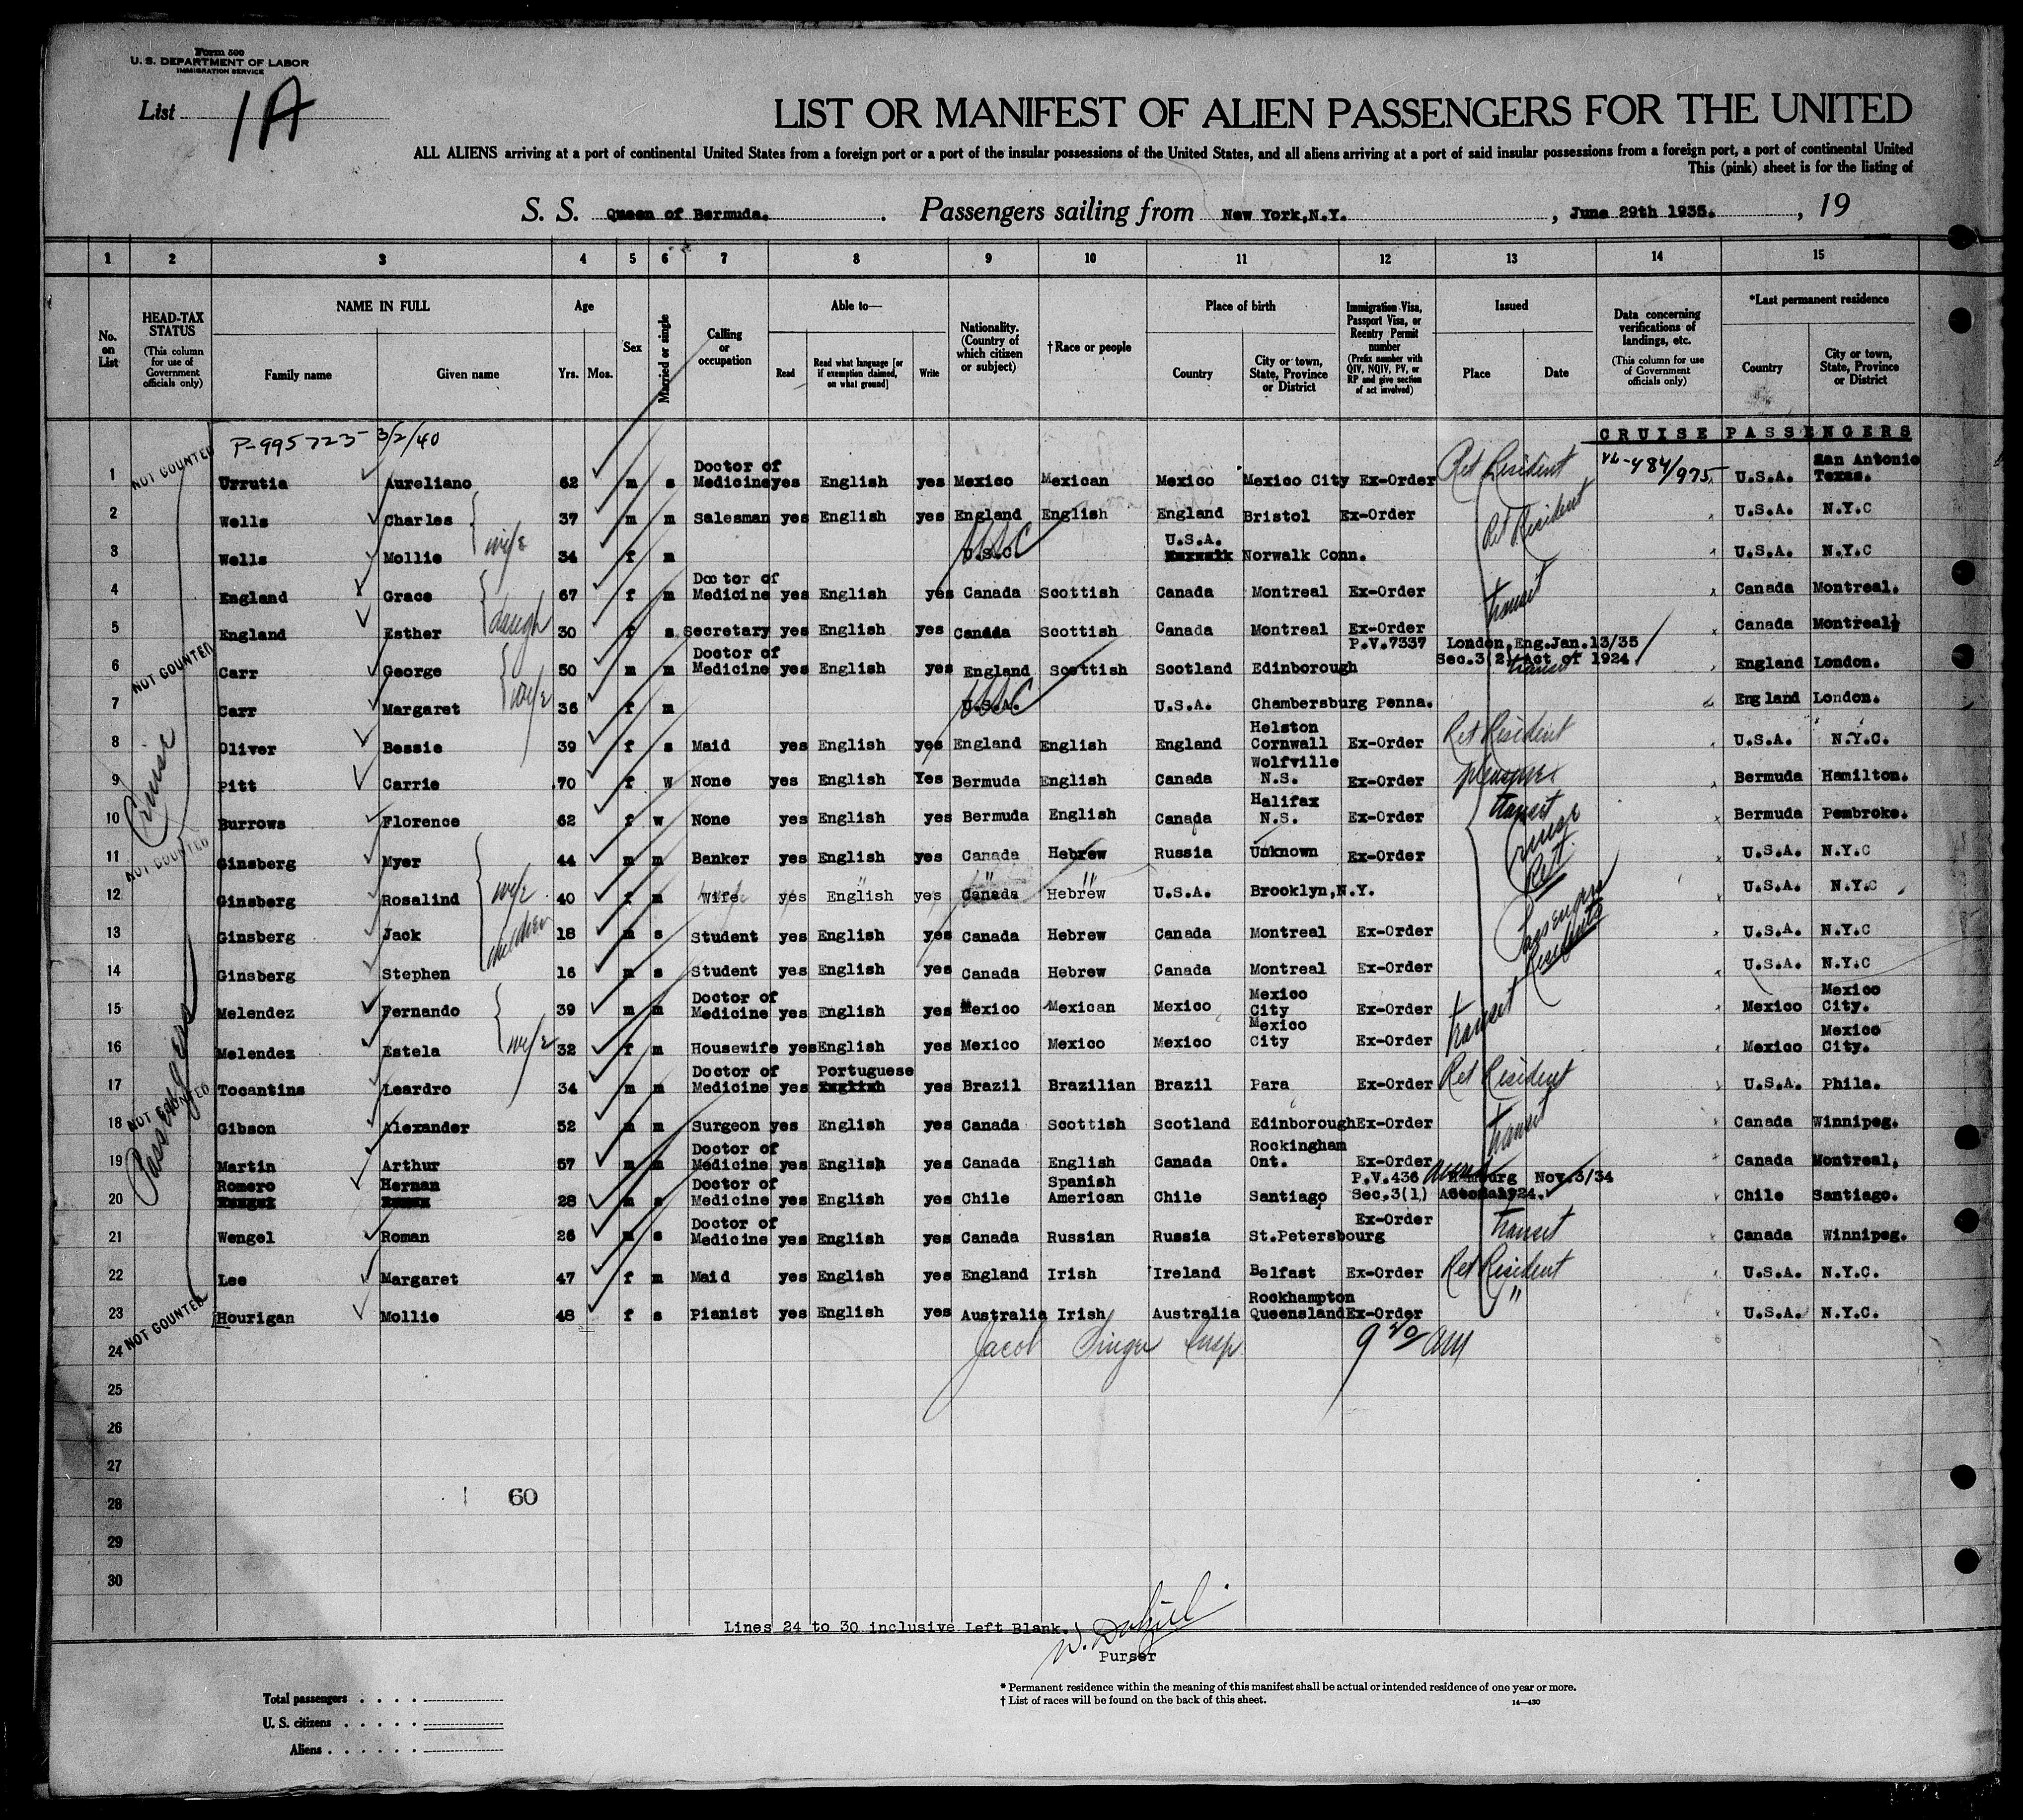 Form 500
U. S. DEPARTMENT OF LABOR
IMMIGRATION SERVICE
List 1A
LIST OR MANIFEST OF ALIEN PASSENGERS FOR THE UNITED
ALL ALIENS arriving at a port of continental United States from a foreign port or a port of the insular possessions of the United States, and all aliens arriving at a port of said insular possessions from a foreign port, a port of continental United
This (pink) sheet is for the listing of
S. S. Queen of Bermuda. Passengers sailing from New York,N.Y. , June 29th 1935. , 19
1 2 3 4 5 6 7 8 9 10 11 12 13 14 15
No. on List
HEAD-TAX STATUS (This column for use of Government officials only)
NAME IN FULL Family name Given name
Age Yrs. Mos.
Sex
Married or single
Calling or occupation
Able to— Read Read what language [or if exemption claimed, on what ground] Write
Nationality. (Country of which citizen or subject)
†Race or people
Place of birth Country City or town, State, Province or District
Immigration Visa, Passport Visa, or Reentry Permit number (Prefix number with QIV, NQIV, PV, or RP and give section of act involved)
Issued Place Date
Data concerning verifications of landings, etc. (This column for use of Government officials only)
*Last permanent residence Country City or town, State, Province or District
P-995723- 3/2/40
CRUISE PASSENGERS
NOT COUNTED
1 Urrutia Aureliano 62 m s Doctor of Medicine yes English yes Mexico Mexican Mexico Mexico City Ex-Order Ret Resident U.S.A. San Antonio Texas.
2 Wells Charles 37 m m Salesman yes English yes England English England Bristol Ex-Order Ret Resident U.S.A. N.Y.C
3 Wells Mollie wife 34 f m U.S.C. USC U.S.A. Norwalk Conn. U.S.A. N.Y.C
4 England Grace 67 f m Doctor of Medicine yes English yes Canada Scottish Canada Montreal Ex-Order transit Canada Montreal.
5 England Esther daugh 30 f s Secretary yes English yes Canada Scottish Canada Montreal Ex-Order Canada Montreal.
NOT COUNTED
6 Carr George 50 m m Doctor of Medicine yes English yes England Scottish Scotland Edinborough P.V.7337 London,Eng.Jan.13/35 Sec.3(2) Act of 1924 transit England London.
7 Carr Margaret wife 36 f m U.S.A. USC U.S.A. Chambersburg Penna. England London.
8 Oliver Bessie 39 f s Maid yes English yes England English England Helston Cornwall Ex-Order Ret Resident U.S.A. N.Y.C.
Cruise
9 Pitt Carrie 70 f w None yes English Yes Bermuda English Canada Wolfville N.S. Ex-Order pleasure Bermuda Hamilton.
10 Burrows Florence 62 f w None yes English yes Bermuda English Canada Halifax N.S. Ex-Order transit Bermuda Pembroke.
NOT COUNTED
11 Ginsberg Myer 44 m m Banker yes English yes Canada Hebrew Russia Unknown Ex-Order Cruise Ret. U.S.A. N.Y.C
12 Ginsberg Rosalind wife 40 f m Wife yes English yes Canada Hebrew U.S.A. Brooklyn,N.Y. U.S.A. N.Y.C
13 Ginsberg Jack children 18 m s Student yes English yes Canada Hebrew Canada Montreal Ex-Order Passengers Residents U.S.A. N.Y.C
14 Ginsberg Stephen 16 m s Student yes English yes Canada Hebrew Canada Montreal Ex-Order U.S.A. N.Y.C
15 Melendez Fernando 39 m m Doctor of Medicine yes English yes Mexico Mexican Mexico Mexico City Ex-Order transit Mexico Mexico City.
16 Melendez Estela wife 32 f m Housewife yes English yes Mexico Mexico Mexico Mexico City Ex-Order Mexico Mexico City.
Passengers
NOT COUNTED
17 Tocantins Leardro 34 m m Doctor of Medicine yes Portuguese English yes Brazil Brazilian Brazil Para Ex-Order Ret Resident U.S.A. Phila.
18 Gibson Alexander 52 m m Surgeon yes English yes Canada Scottish Scotland Edinborough Ex-Order transit Canada Winnipeg.
19 Martin Arthur 57 m m Doctor of Medicine yes English yes Canada English Canada Rockingham Ont. Ex-Order Canada Montreal.
20 Romero Hernan 28 m s Doctor of Medicine yes English yes Chile Spanish American Chile Santiago P.V.436 Hamburg Nov.3/34 Sec.3(1) Act of 1924. Chile Santiago.
21 Wengel Roman 26 m s Doctor of Medicine yes English yes Canada Russian Russia St.Petersbourg Ex-Order transit Canada Winnipeg.
22 Lee Margaret 47 f m Maid yes English yes England Irish Ireland Belfast Ex-Order Ret Resident U.S.A. N.Y.C.
NOT COUNTED
23 Hourigan Mollie 48 f s Pianist yes English yes Australia Irish Australia Rockhampton Queensland Ex-Order " U.S.A. N.Y.C.
24 Jacob Singer Insp 9 40 AM
25
26
27
28 60
29
30
Lines 24 to 30 inclusive Left Blank.
Purser
Total passengers
U. S. citizens
Aliens
* Permanent residence within the meaning of this manifest shall be actual or intended residence of one year or more.
† List of races will be found on the back of this sheet. 14—430